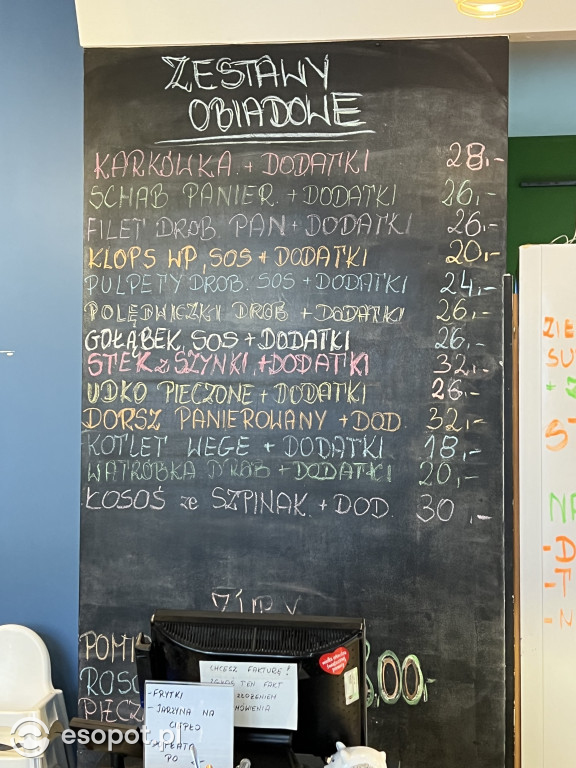 ZESTAWY
OBIADOWE
KARKÓWKA + DODATKI 28,-
SCHAB PANIER. + DODATKI 26,-
FILET DROB. PAN + DODATKI 26,-
KLOPS WP, SOS + DODATKI 20,-
PULPETY DROB. SOS + DODATKI 24,-
POLĘDWICZKI DROB + DODATKI 26,-
GOŁĄBEK, SOS + DODATKI 26,-
STEK z SZYNKI + DODATKI 32,-
UDKO PIECZONE + DODATKI 26,-
DORSZ PANIEROWANY + DOD. 32,-
KOTLET WEGE + DODATKI 18,-
WĄTRÓBKA DROB + DODATKI 20,-
ŁOSOŚ ze SZPINAK. + DOD. 30,-
CHCESZ FAKTURĘ?
TEN FAKT
- FRYTKI
- JARZYNA NA
CIEPŁO
PO
esopot.pl